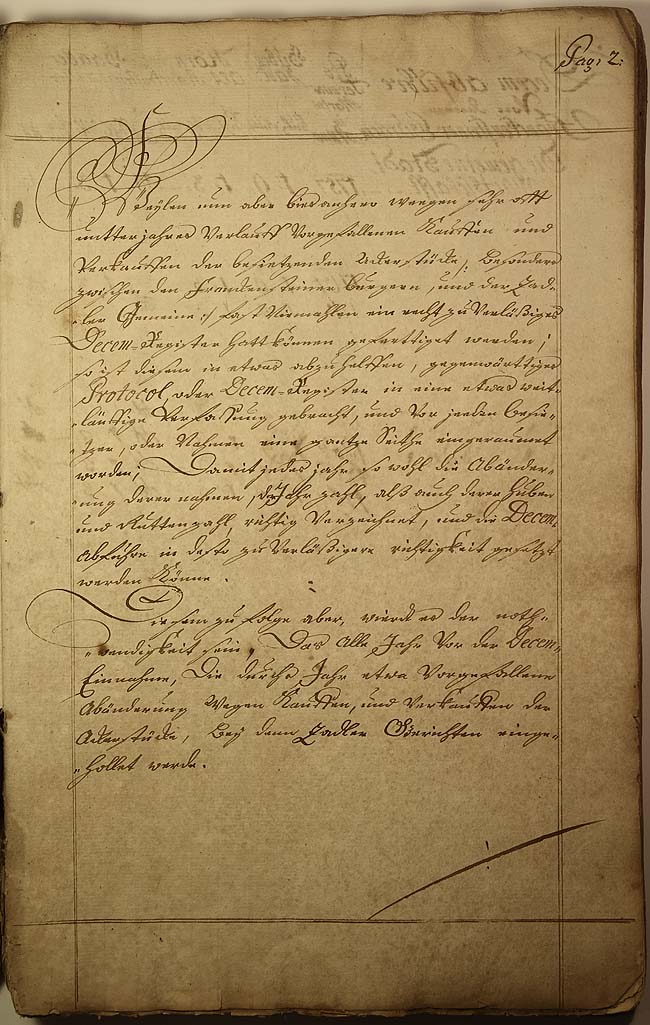 Pag: 2.
Weylen nun aber bies anhero weegen sehr oft
untter jahres Verlauff Vorgefallenen Kauffen und
Verkauffen der besietzenden Ackerstücke, /: besonders
zwischen den Franckensteiner burgern, und der Zad-
-ler Gemeine :/ fast Niemahlen ein recht zu Verläßiges
Decem-Register hatt können geferttiget werden;
so ist diesem in etwas abzuhelffen, gegenwärttiges
Protocol, oder Decem-Register in eine etwas weit-
-läuffige Verfassung gebracht, und Vor jeeden besie-
-tzer, oder Nahmen eine gantze Seithe eingeraumet
worden; Damit jedes jahr so wohl die Abänder-
-ung derer nahmen, der Jahr zahl, alß auch derer Huben
und Rutten zahl, richtig Verzeichnet, und die Decem
Abfuhre in desto zu Verläßigere richtigkeit gesetzt
werden Könne.
Diesem zu folge aber, wierdt es der noth-
-wendigkeit sein, Das Alle Jahr Vor der Decem-
Einnahme, Die durchs Jahr etwa Vorgefallene
Abänderung Wegen Kauffen, und Verkauffen der
Ackerstücke, Bey denn Zadler Gerichten einge-
-hollet werde.